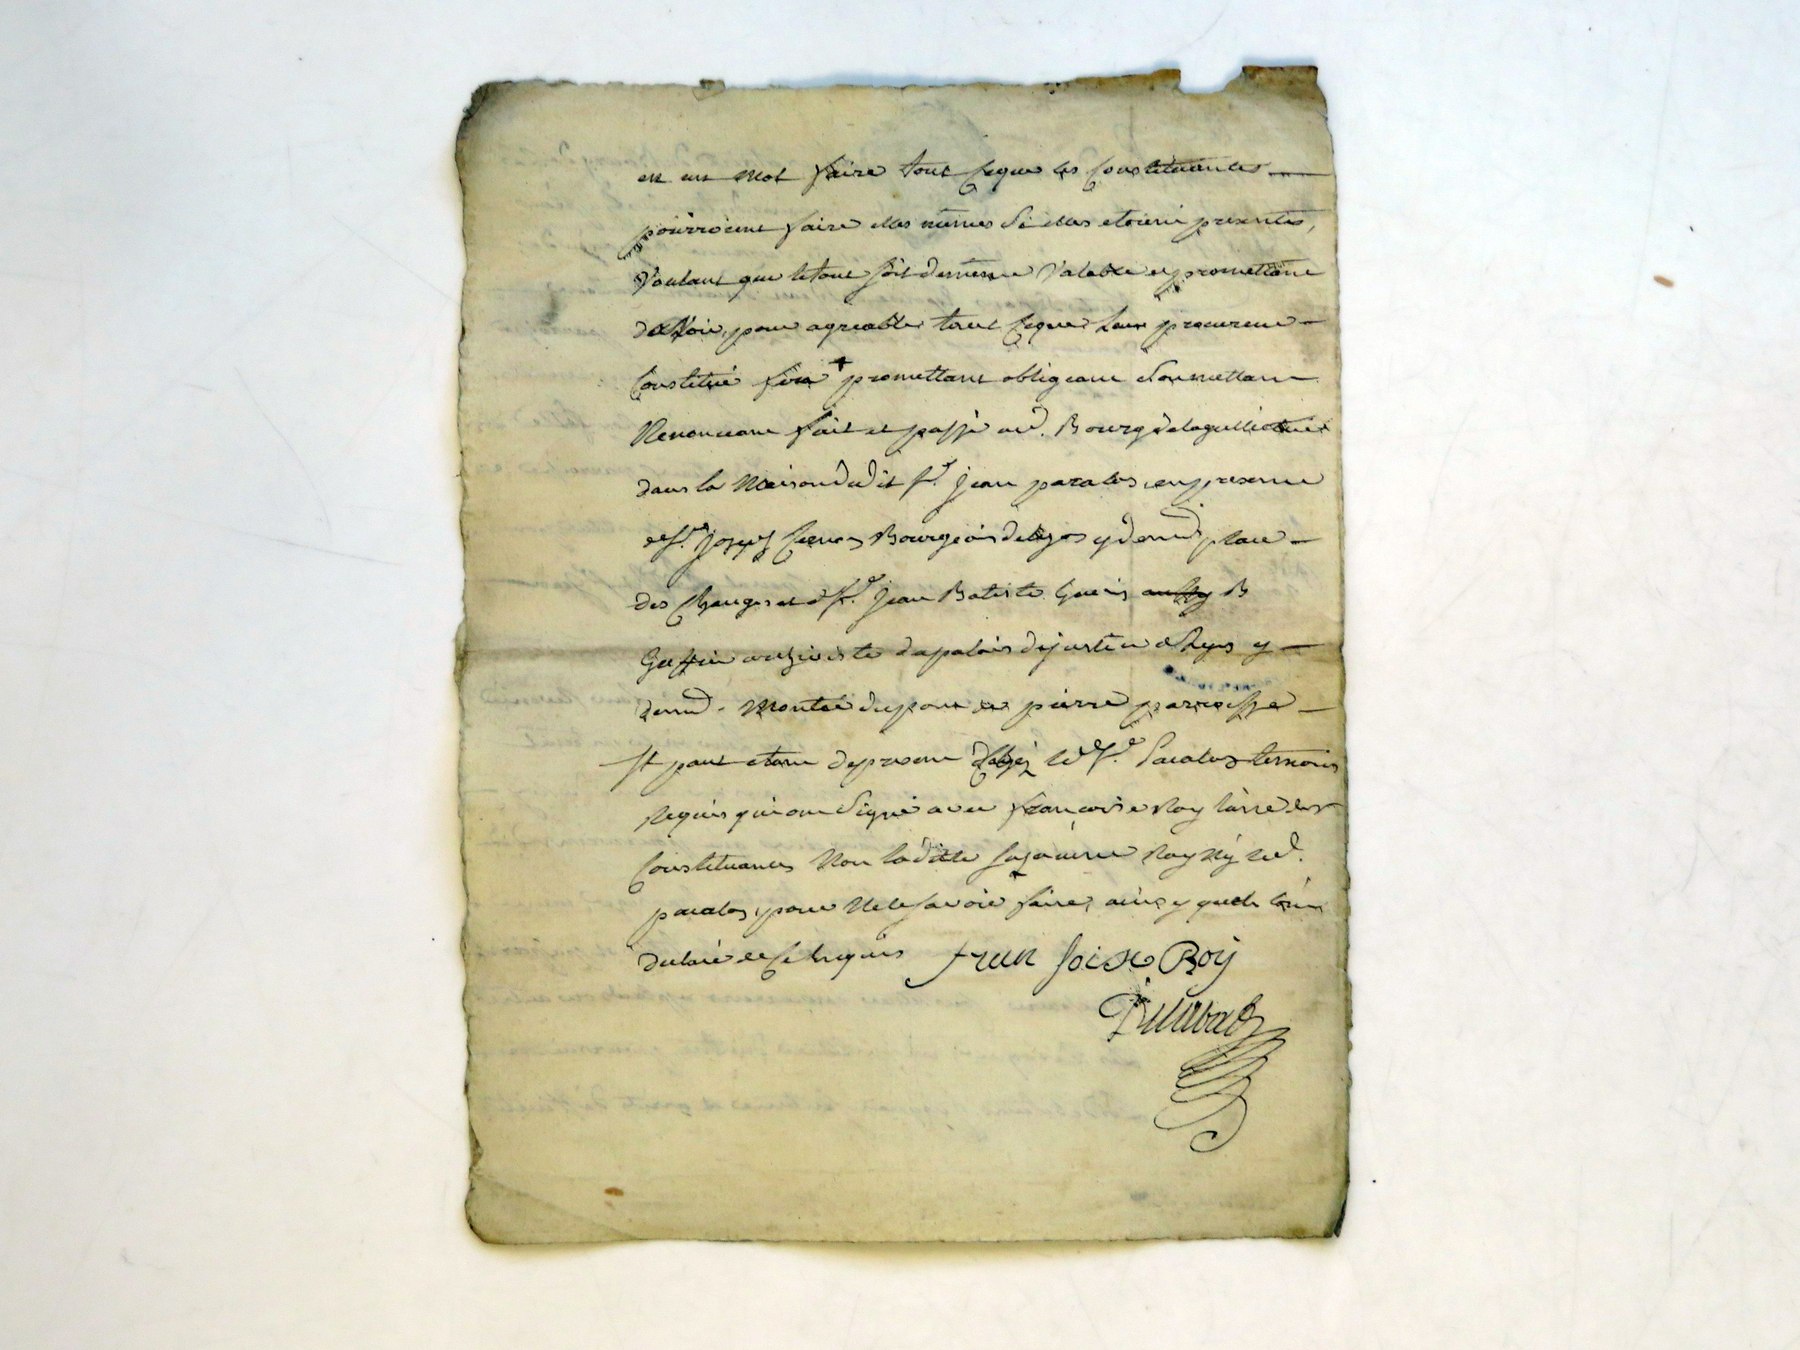 en un mot faire tout ceque les Constituantes
pourroient faire elles mêmes Si elles etoient presentes,
Voulant que letout soit demême Valable et promettant
davoir pour agreable tout Ceque Leur procureur
Constitué fera + promettant obligeant soumettant
Renoncant fait et passé aud. Bourg delaguillotiere
dans la Maison dudit Sr. Jean paralos en presence
de Sr. Joseph Bourgeois delyon y demt place
des Changes et d Sr. Jean Batiste Guerin aussy B
Greffier archiviste dupalais dejustice de Lyon y
demt. Montée dupont de pierre parroisse
St paul etant depresent chez led Sr. Paralos temoins
Requis qui ont Signé avec françoise Roy lune des
Constituantes Non ladite Suzanne Roy Ny led.
paralos, pour Ne le savoir faire, ainsy quils lont
declaré de ce Enquis fran soise Roy